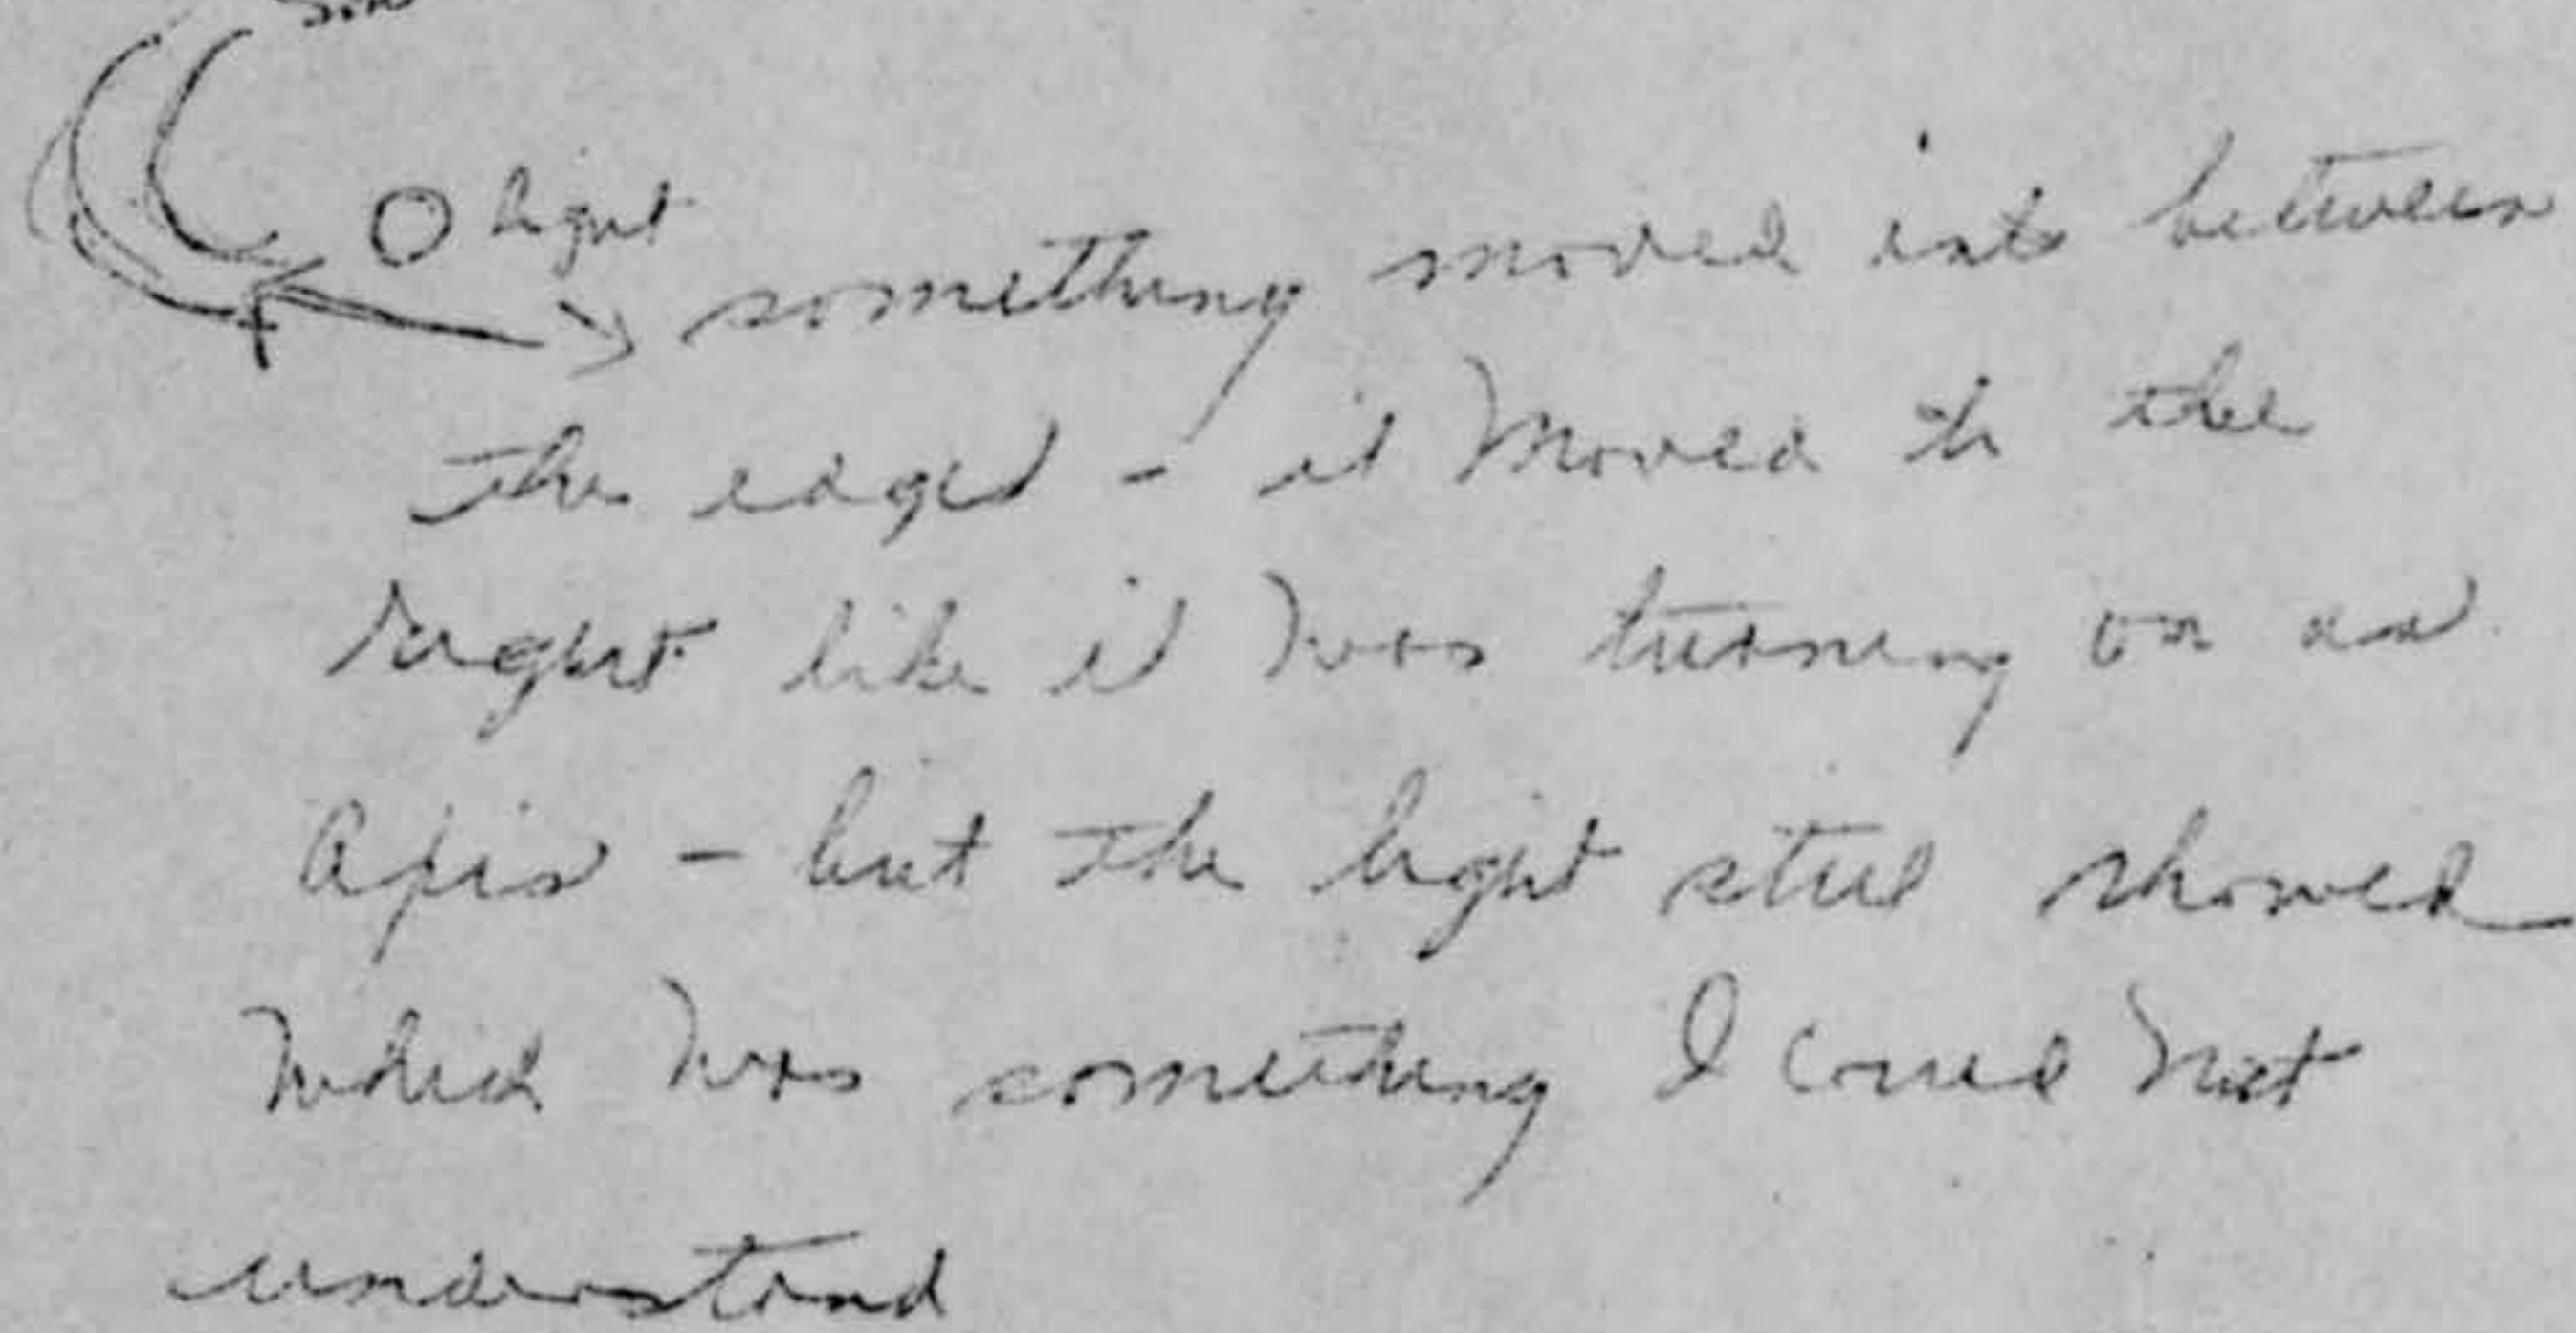 light
something moved into between
the edges - it moved to the
right like it was turning on an
apis - but the light still showed
which was something I could not
understand